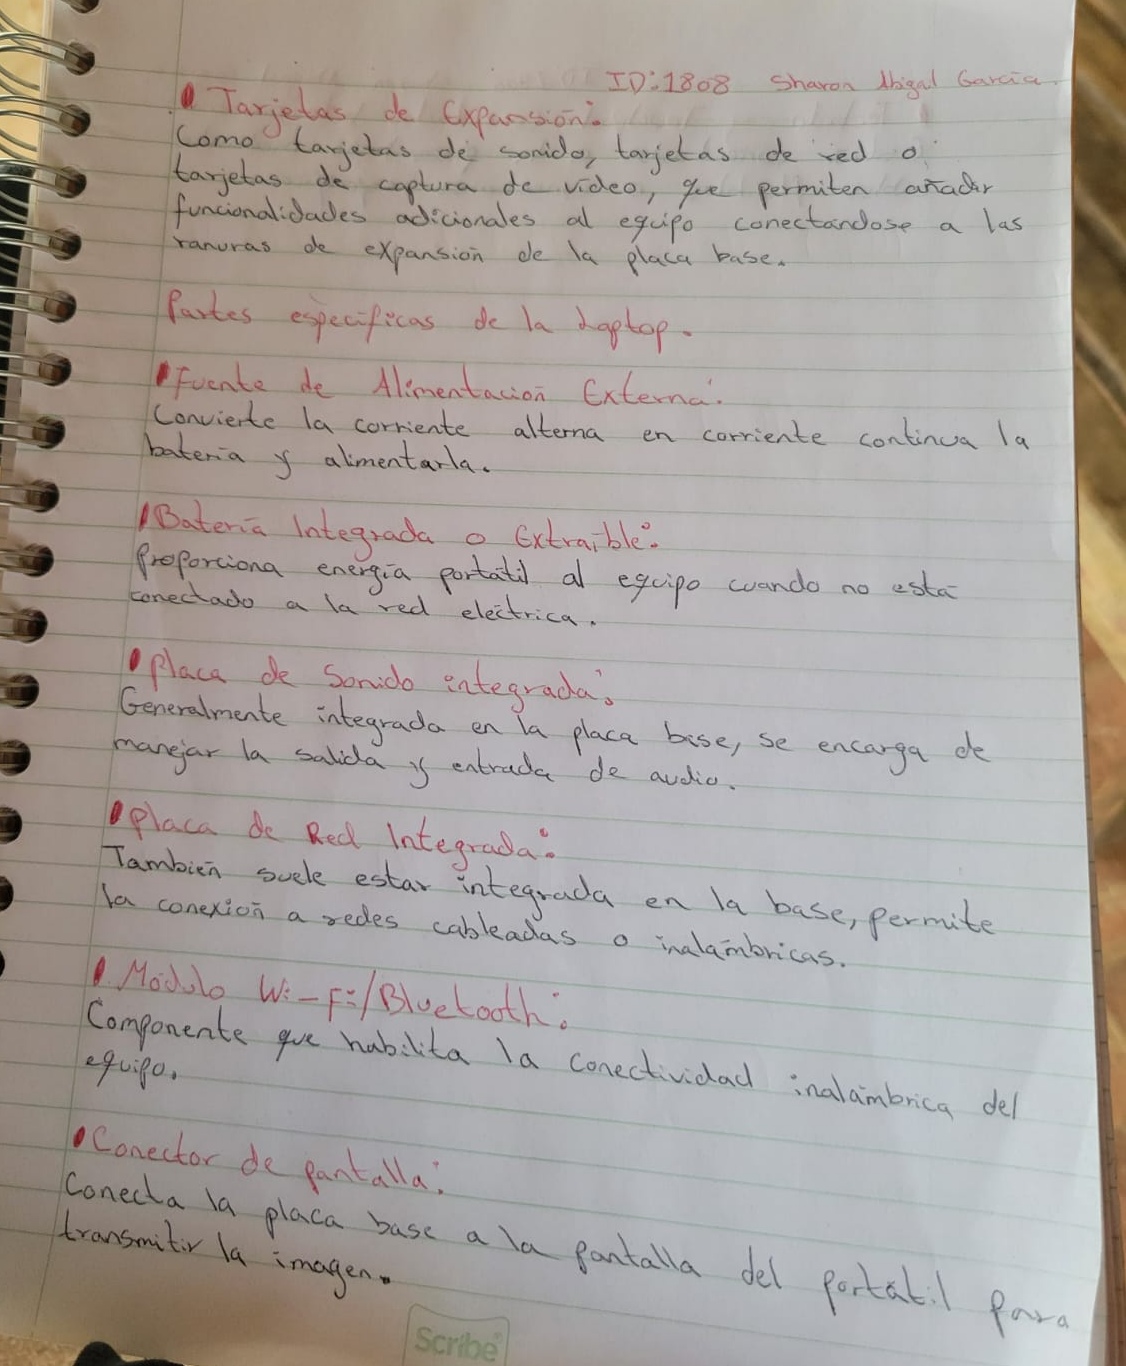 ID:1808 Sharon Abigal García
Tarjetas de Expansión:
Como tarjetas de sonido, tarjetas de red o
tarjetas de captura de vídeo, que permiten añadir
funcionalidades adicionales al equipo conectándose a las
ranuras de expansión de la placa base.
Partes específicas de la Laptop.
Fuente de Alimentación Externa:
Convierte la corriente alterna en corriente continua la
batería y alimentarla.
Batería Integrada o Extraíble:
Proporciona energía portátil al equipo cuando no está
conectado a la red eléctrica.
Placa de Sonido integrada:
Generalmente integrada en la placa base, se encarga de
manejar la salida y entrada de audio.
Placa de Red Integrada:
También suele estar integrada en la base, permite
la conexión a redes cableadas o inalámbricas.
Módulo Wi-Fi/Bluetooth:
Componente que habilita la conectividad inalámbrica del
equipo.
Conector de pantalla:
Conecta la placa base a la pantalla del portátil para
transmitir la imagen.
Scribe